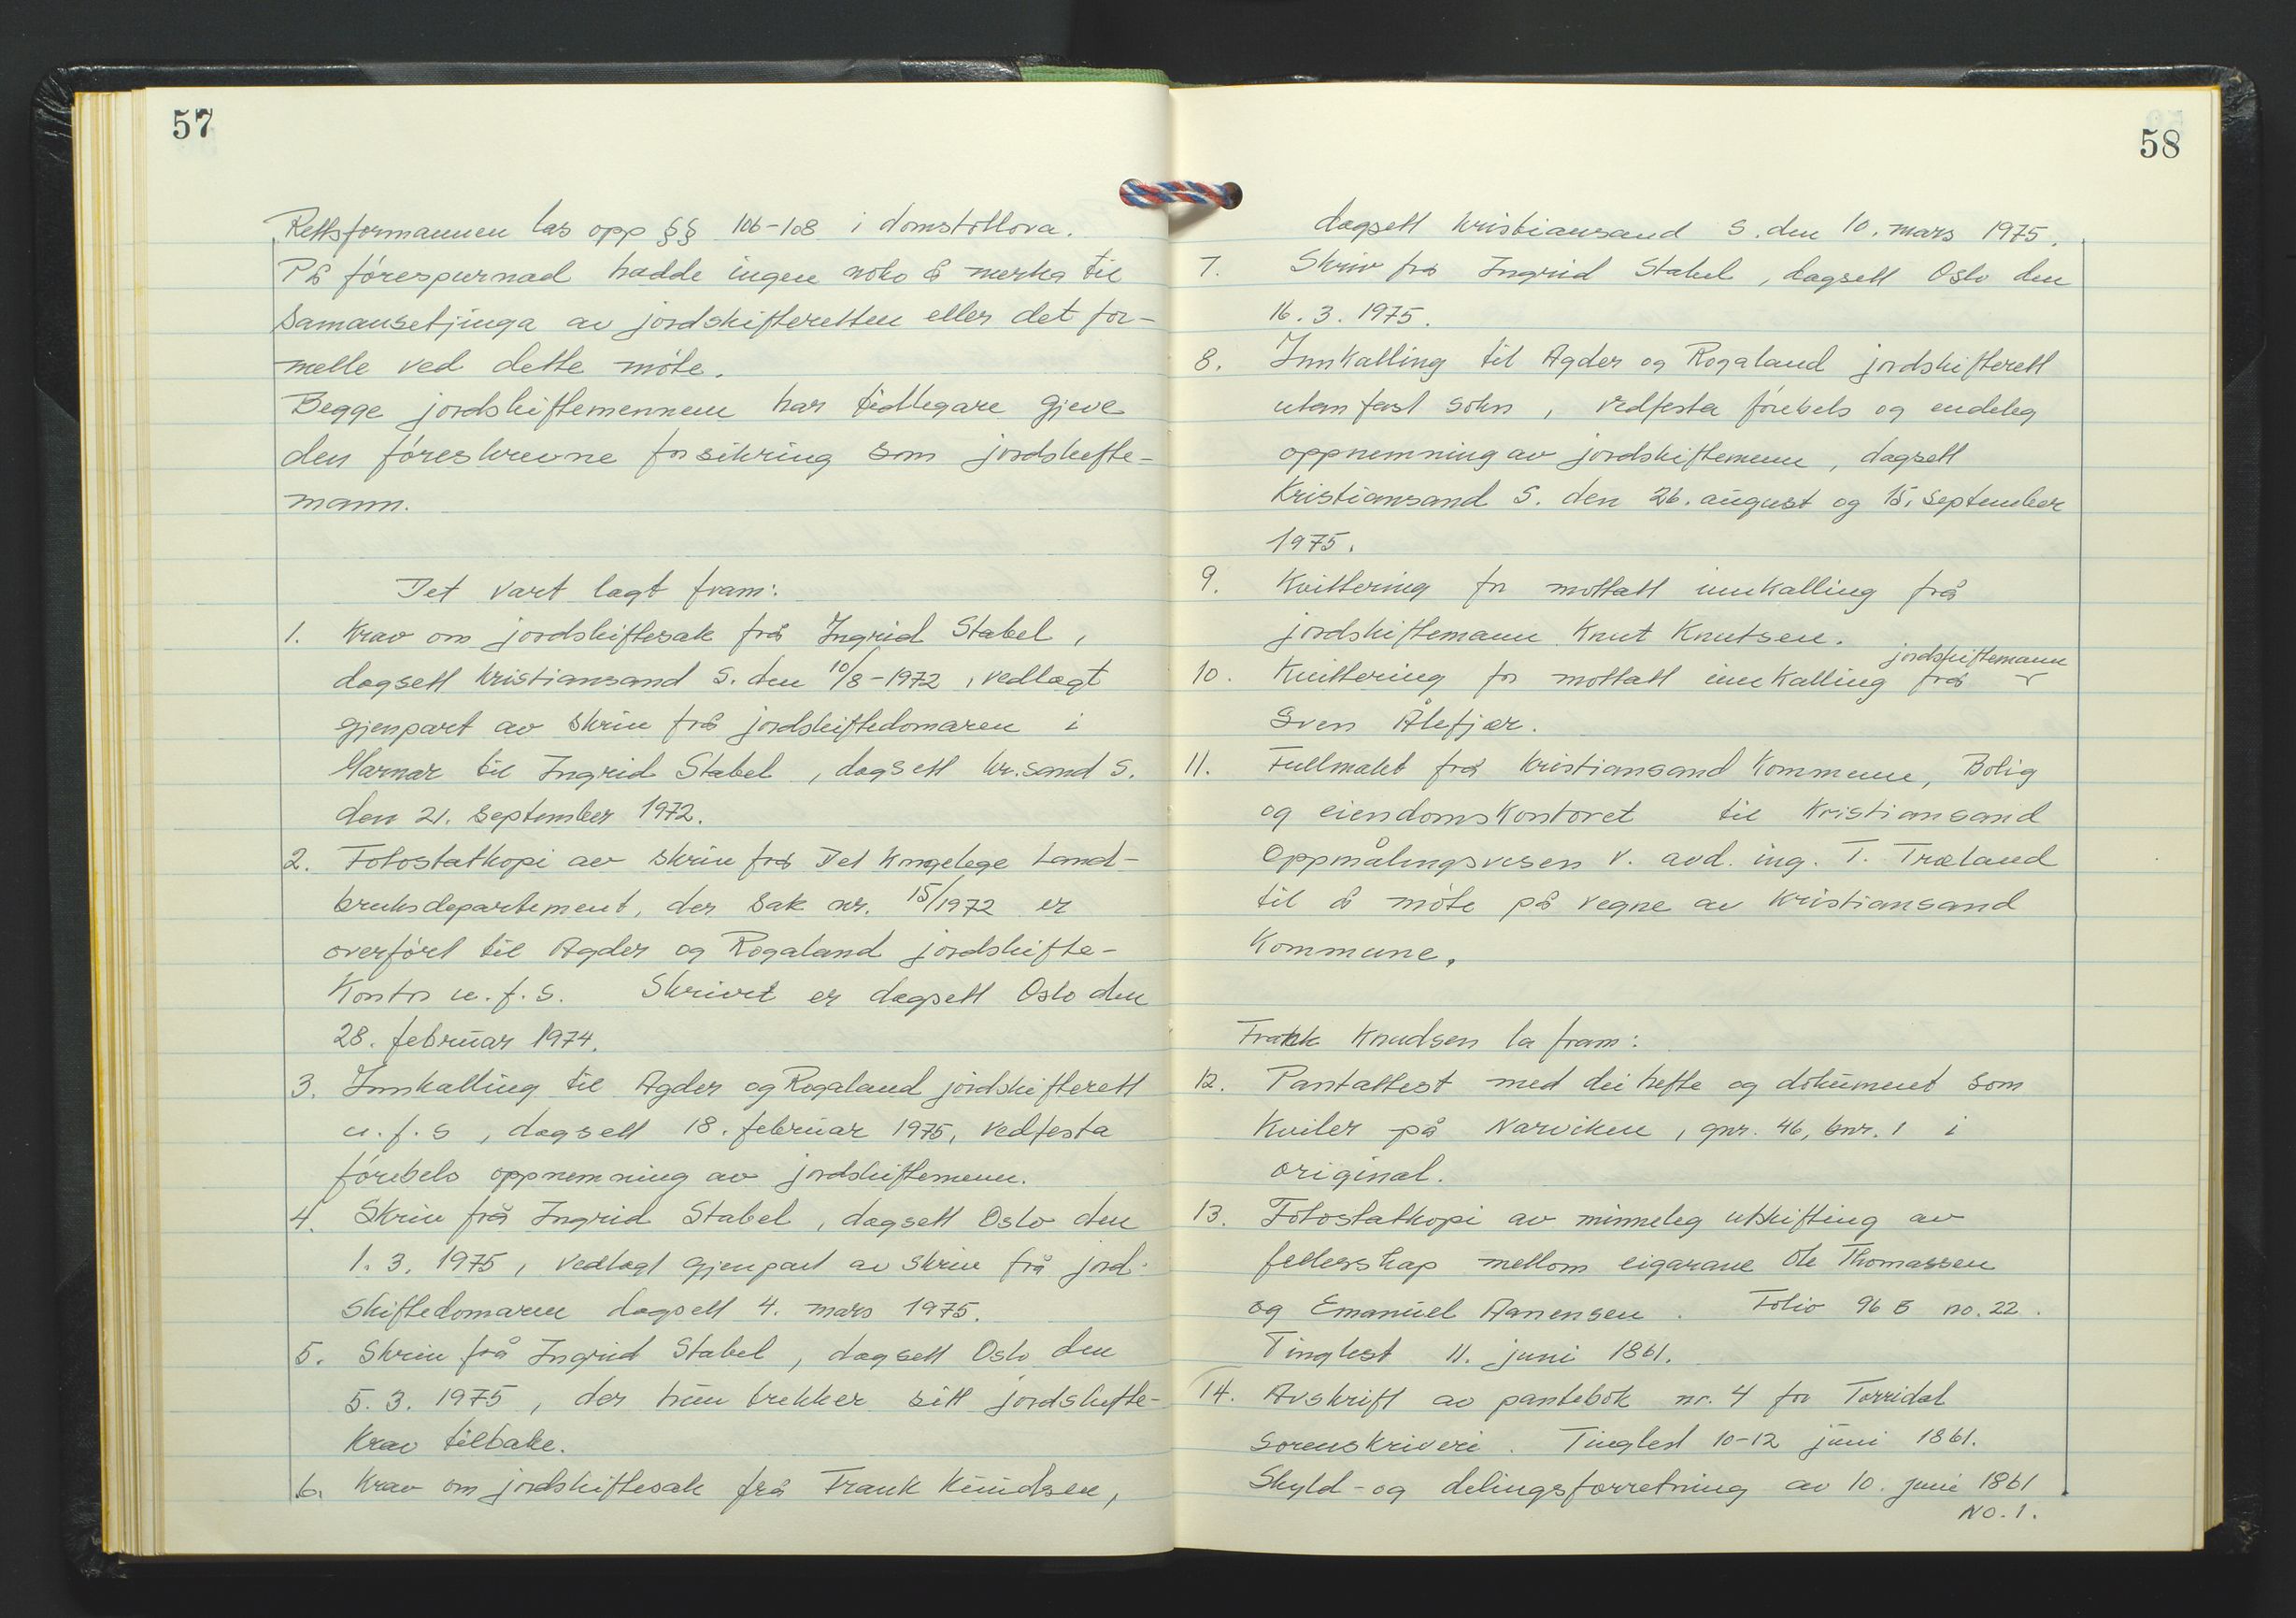 57
Rettsformannen las opp §§ 106-108 i domstollova.
På førespurnad hadde ingen noko å merka til
samansetjinga av jordskifteretten eller det for-
melle ved dette møte.
Begge jordskiftemennene har tidlegare gjeve
den føreskrevne forsikring som jordskifte-
mann.
Det vart lagt fram:
1. Krav om jordskiftesak frå Ingrid Stabel,
dagsett Kristiansand S. den 10/8-1972, vedlagt
gjenpart av skriv frå jordskiftedomaren i
Marnar til Ingrid Stabel, dagsett Kr.sand S.
den 21. september 1972.
2. Fotostatkopi av skriv frå Det Kongelege Land-
bruksdepartement, der sak nr. 15/1972 er
overført til Agder og Rogaland jordskifte-
kontor u.f.s. Skrivet er dagsett Oslo den
28. februar 1974.
3. Innkalling til Agder og Rogaland jordskifterett
u.f.s, dagsett 18. februar 1975, vedfesta
førebels oppnemning av jordskiftemenn.
4. Skriv frå Ingrid Stabel, dagsett Oslo den
1.3. 1975, vedlagt gjenpart av skriv frå jord-
skiftedomaren dagsett 4. mars 1975.
5. Skriv frå Ingrid Stabel, dagsett Oslo den
5.3. 1975, der hun trekker sitt jordskifte-
krav tilbake.
6. Krav om jordskiftesak frå Frank Knudsen,
58
dagsett Kristiansand S. den 10. mars 1975.
7. Skriv frå Ingrid Stabel, dagsett Oslo den
16.3. 1975.
8. Innkalling til Agder og Rogaland jordskifterett
utan fast sokn, vedfesta førebels og endeleg
oppnemning av jordskiftemenn, dagsett
Kristiansand S. den 26. august og 15. september
1975.
9. Kvittering for mottatt innkalling frå
jordskiftemann Knut Knutsen.
jordskiftemann
10. Kvittering for mottatt innkalling frå
Sven Ålefjær.
11. Fullmakt frå Kristiansand Kommune, Bolig
og eiendomskontoret til Kristiansand
Oppmålingsvesen v. avd. ing. T. Træland
til å møte på vegne av Kristiansand
Kommune.
Frank Knudsen la fram:
12. Pantattest med dei hefte og dokument som
kviler på Narviken, gnr. 46, bnr. 1 i
original.
13. Fotostatkopi av minneleg utskifting av
fellesskap mellom eigarane Ole Thomassen
og Emanuel Aanensen. Folio 96 B no. 22.
Tinglest 11. juni 1861.
14. Avskrift av pantebok nr. 4 for Torridal
Sorenskriveri. Tinglest 10-12 juni 1861.
Skyld- og delingsforretning av 10. juni 1861
No. 1.